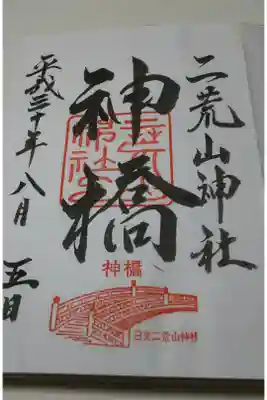 二荒山神社
神橋
平成三十年八月
五日
神橋
日光二荒山神社